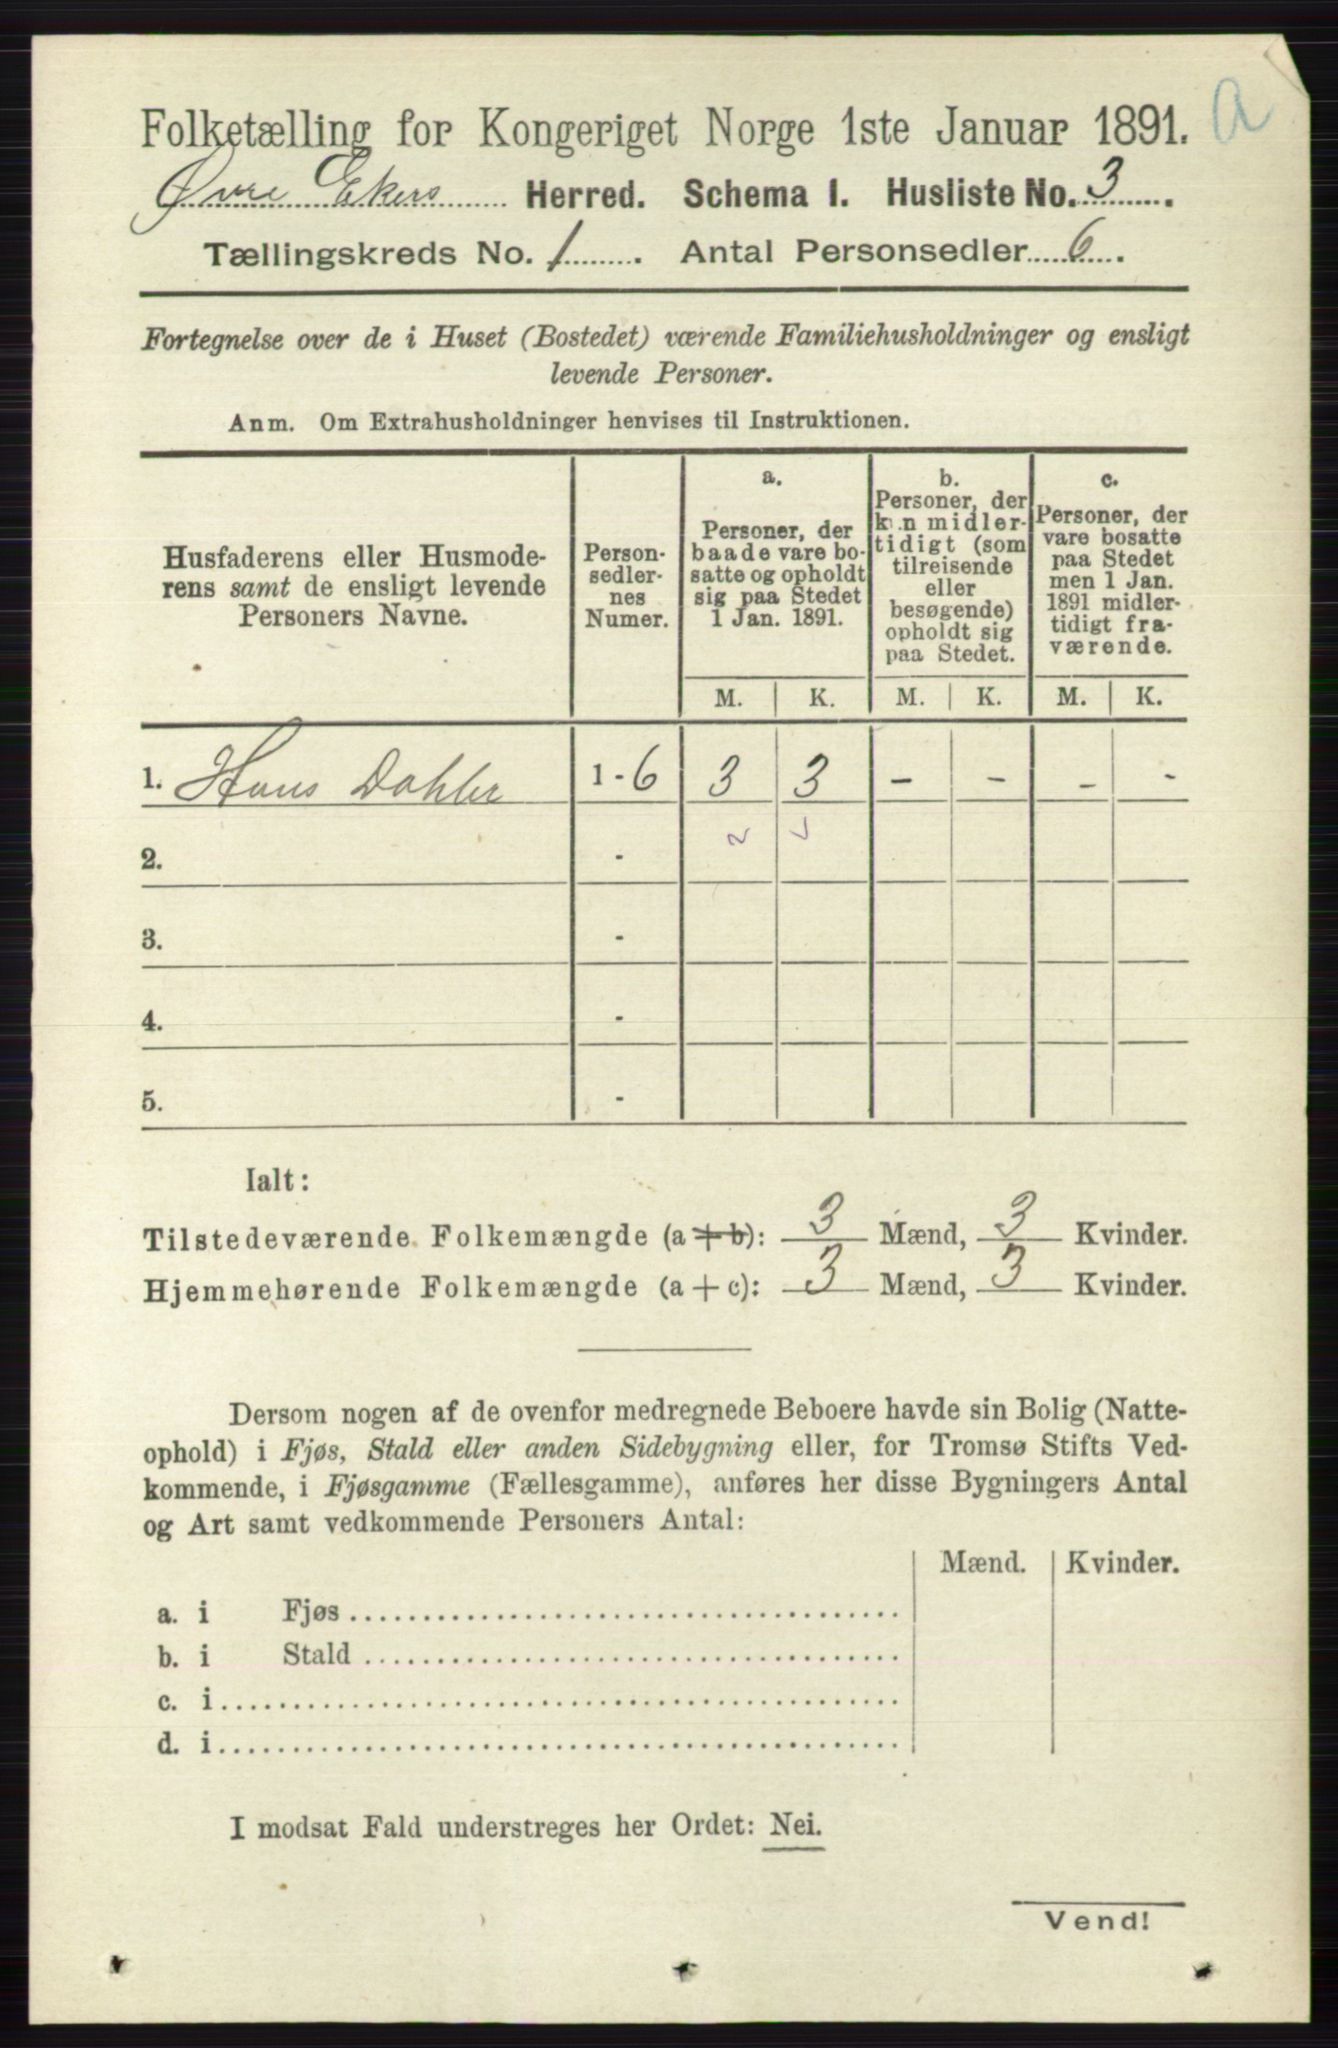 a
Folketælling for Kongeriget Norge 1ste Januar 1891.
Øvre Ekers Herred. Schema I. Husliste No. 3.
Tællingskreds No. 1. Antal Personsedler 6.
Fortegnelse over de i Huset (Bostedet) værende Familiehusholdninger og ensligt
levende Personer.
Anm. Om Extrahusholdninger henvises til Instruktionen.
Husfaderens eller Husmode-
rens samt de ensligt levende
Personers Navne.
Person-
sedler-
nes
Numer.
a.
Personer, der
baade vare bo-
satte og opholdt
sig paa Stedet
1 Jan. 1891.
b.
Personer, der
kun midler-
tidigt (som
tilreisende
eller
besøgende)
opholdt sig
paa Stedet.
c.
Personer, der
vare bosatte
paa Stedet
men 1 Jan.
1891 midler-
tidigt fra-
værende.
M. K. M. K. M. K.
1. Hans Dahler 1 - 6 3 3 - - - -
2. -
3. -
4. -
5. -
Ialt:
Tilstedeværende Folkemængde (a + b): 3 Mænd, 3 Kvinder.
Hjemmehørende Folkemængde (a + c): 3 Mænd, 3 Kvinder.
Dersom nogen af de ovenfor medregnede Beboere havde sin Bolig (Natte-
ophold) i Fjøs, Stald eller anden Sidebygning eller, for Tromsø Stifts Ved-
kommende, i Fjøsgamme (Fællesgamme), anføres her disse Bygningers Antal
og Art samt vedkommende Personers Antal:
Mænd. Kvinder.
a. i Fjøs
b. i Stald
c. i
d. i
I modsat Fald understreges her Ordet: Nei.
Vend!